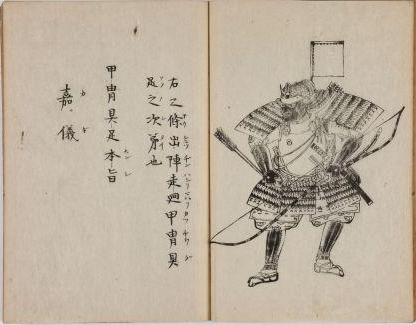 右之條出陣走廻甲冑具
足之次第也
甲冑具足本旨
嘉儀